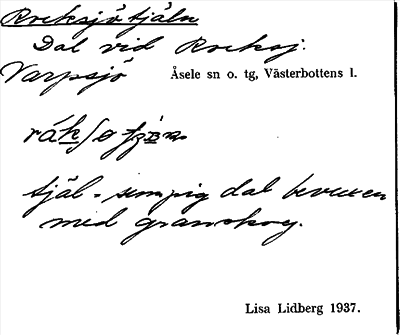 Rocksjötjäln
Dal vid Rocksj.
Varpsjö Åsele sn o. tg, Västerbottens l.
tjäl = sumpig dal bevuxen
med granskog.
Lisa Lidberg 1937.